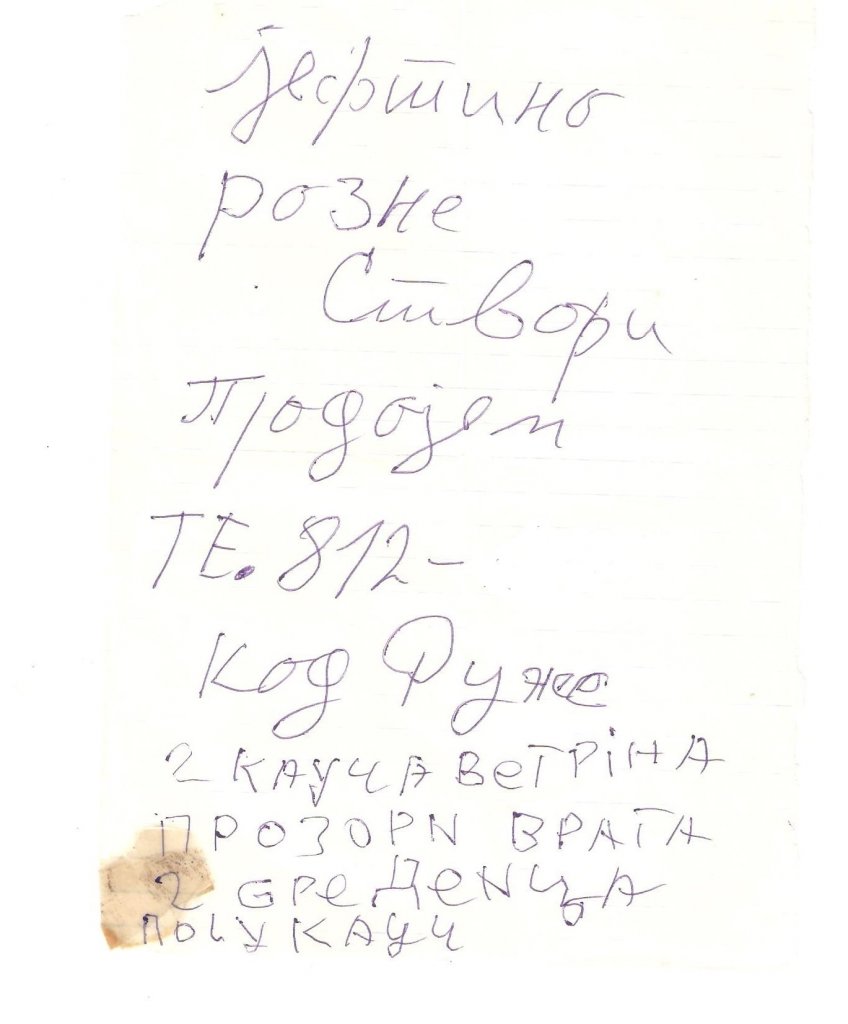 јефтино
розне
Створи
продојем
ТЕ. 812-
код Руже
2 КАУЧА ВеТРіНА
ПРОЗОРИ ВРАТА
2 GРеДеNЦА
ПОЛУ КАУЧ